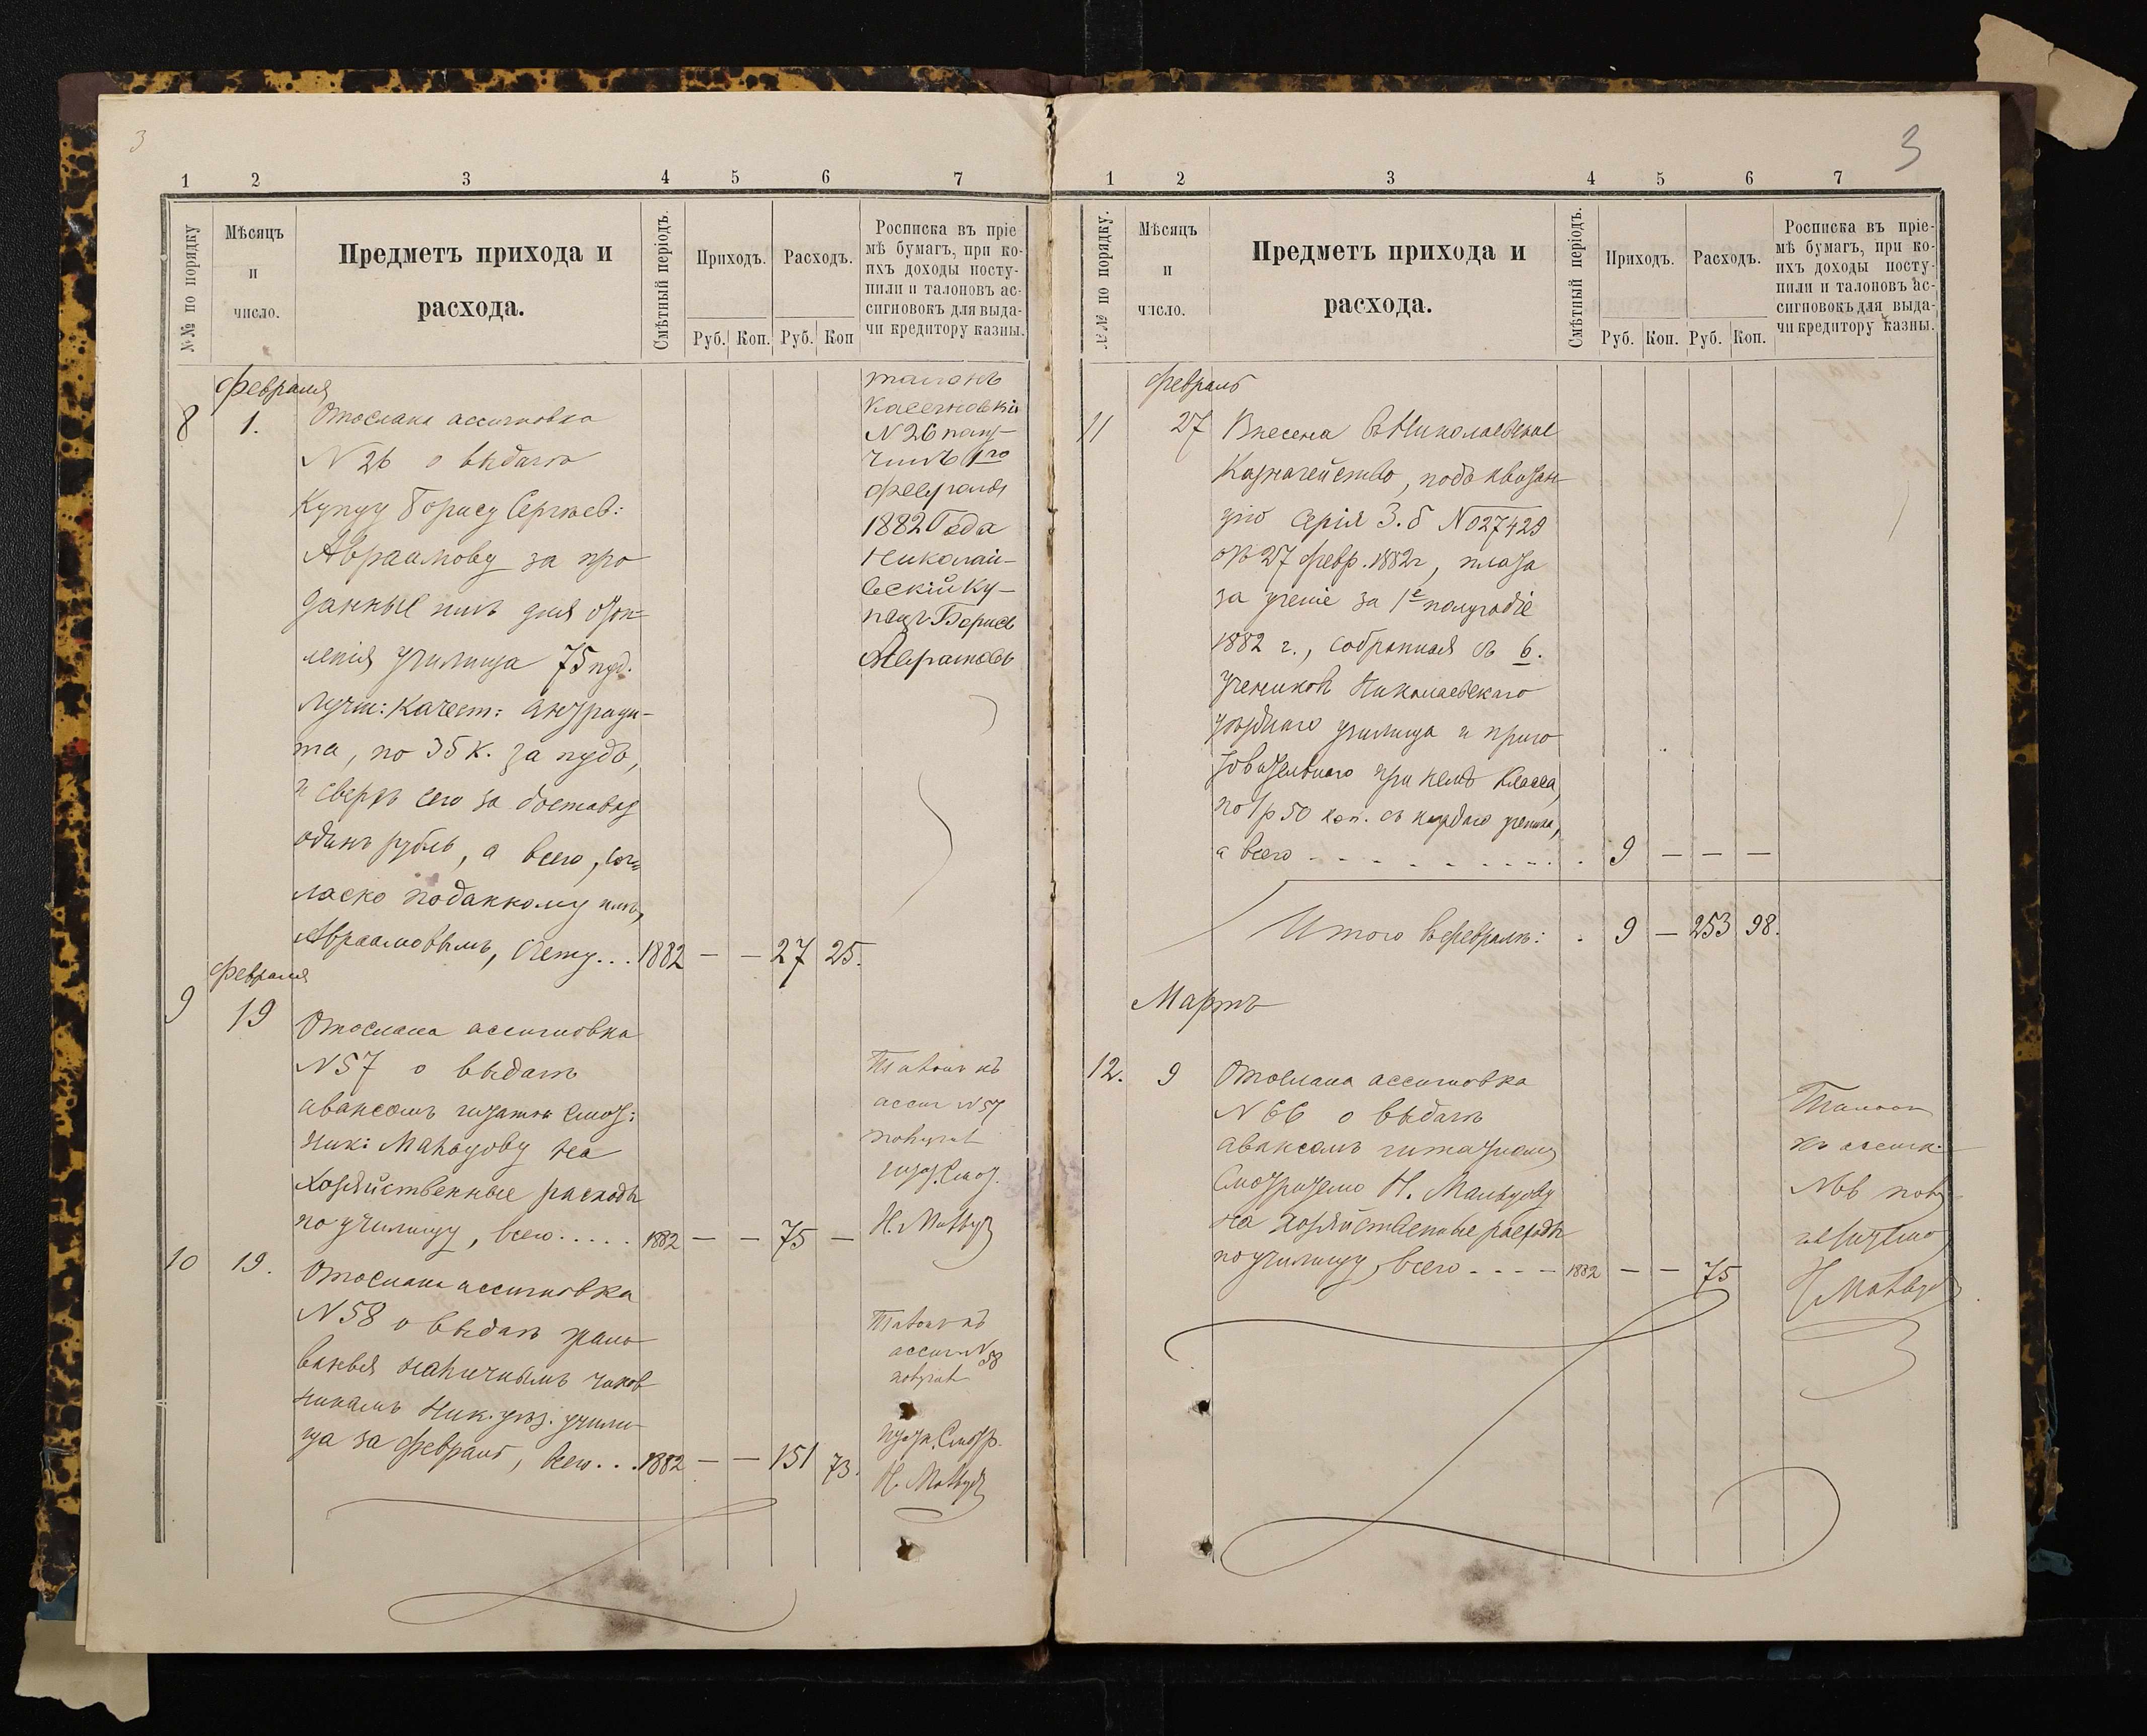 3
1 2 3 4 5 6 7
№№ по порядку
Мѣсяцъ
и
число.
Предметъ прихода и
расхода.
Смѣтный періодъ.
Приходъ. Расходъ.
Руб. Коп. Руб. Коп
Росписка въ пріе
мѣ бумагъ, при ко-
ихъ доходы посту-
пили и талоновъ ас-
сигновокъ для выда-
чи кредитору казны.
Февраля
8 1. Отослана ассигновка
N 26 о выдачѣ
Купцу Борису Сергѣев:
Авраамову за про
данные имъ для отоп-
ленія училища 75 пуд.
Лучш: качест: антраци-
та, по 35 к. за пудъ,
и сверхъ сего за доставку
одинъ рубль, а всего, сог
ласно поданному имъ,
Авраамовымъ, счету... 1882 — — 27 25.
талонъ
N 26 полу-
чилъ 1го
февраля
1882 Года
Николаи-
вскій Ку-
пецъ Борисъ
Авраамовъ
Февраля
9 19 Отослана ассигновка
N 57 о выдачѣ
авансомъ штатн Смот:
Ник: Мальцову на
хозяйственные расходы
по училищу, всего..... 1882 — — 75 —
Талонъ къ
ассиг N 57
получилъ
штат. Смот.
10 19. Отослана ассигновка
N 58 о выдачѣ жало
ванья наличнымъ чинов
никамъ Ник. уѣз. учили-
ща за февраль, всего... 1882 — — 151 73.
Талонъ къ
ассиг N 58
получилъ
Смотр.
3
1 2 3 4 5 6 7
№№ по порядку.
Мѣсяцъ
и
число.
Предметъ прихода и
расхода.
Смѣтный періодъ.
Приходъ. Расходъ.
Руб. Коп. Руб. Коп.
Росписка въ пріе-
мѣ бумагъ, при ко-
ихъ доходы посту-
пили и талоновъ ас-
сигновокъ для выда-
чи кредитору казны.
Февраль
11 27 Внесена въ Николаевское
Казначейство, подъ квитан
цію Серія З. б N 027429
отъ 27 февр. 1882 г, плата
за ученіе за 1е полугодіе
1882 г., собранная съ 6.
учениковъ Николаевскаго
уѣзднаго училища и приго
товительнаго при немъ класса,
по 1 р 50 коп. съ каждаго ученика,
а всего . . . . . . . . . . 9 — — —
Итого въ февралѣ: . 9 — 253 98.
Мартъ
12. 9 Отослана ассигновка
N 66 о выдачѣ
авансомъ штатному
Смотрителю Н. Мальцову
на хозяйственные расходы
по училищу, всего - - - - 1882 — — 75
Талонъ
къ ассигн: